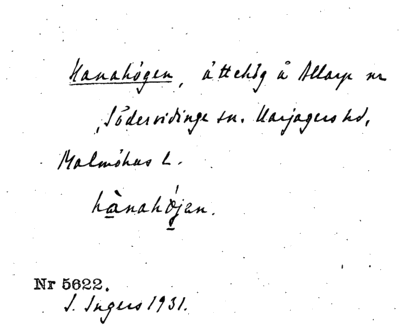 Hanahögen, ättehög å Allarp nr
Södervidinge sn. Harjagers hd,
Malmöhus L.
hànahǿjan.
Nr 5622.
I. Ingers 1931.